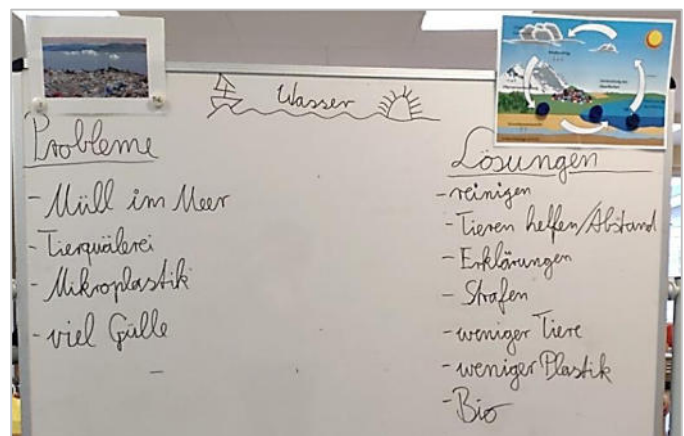 Wasser
Probleme
- Müll im Meer
- Tierquälerei
- Mikroplastik
- viel Gülle
-
Lösungen
- reinigen
- Tieren helfen/Abstand
- Erklärungen
- Strafen
- weniger Tiere
- weniger Plastik
- Bio